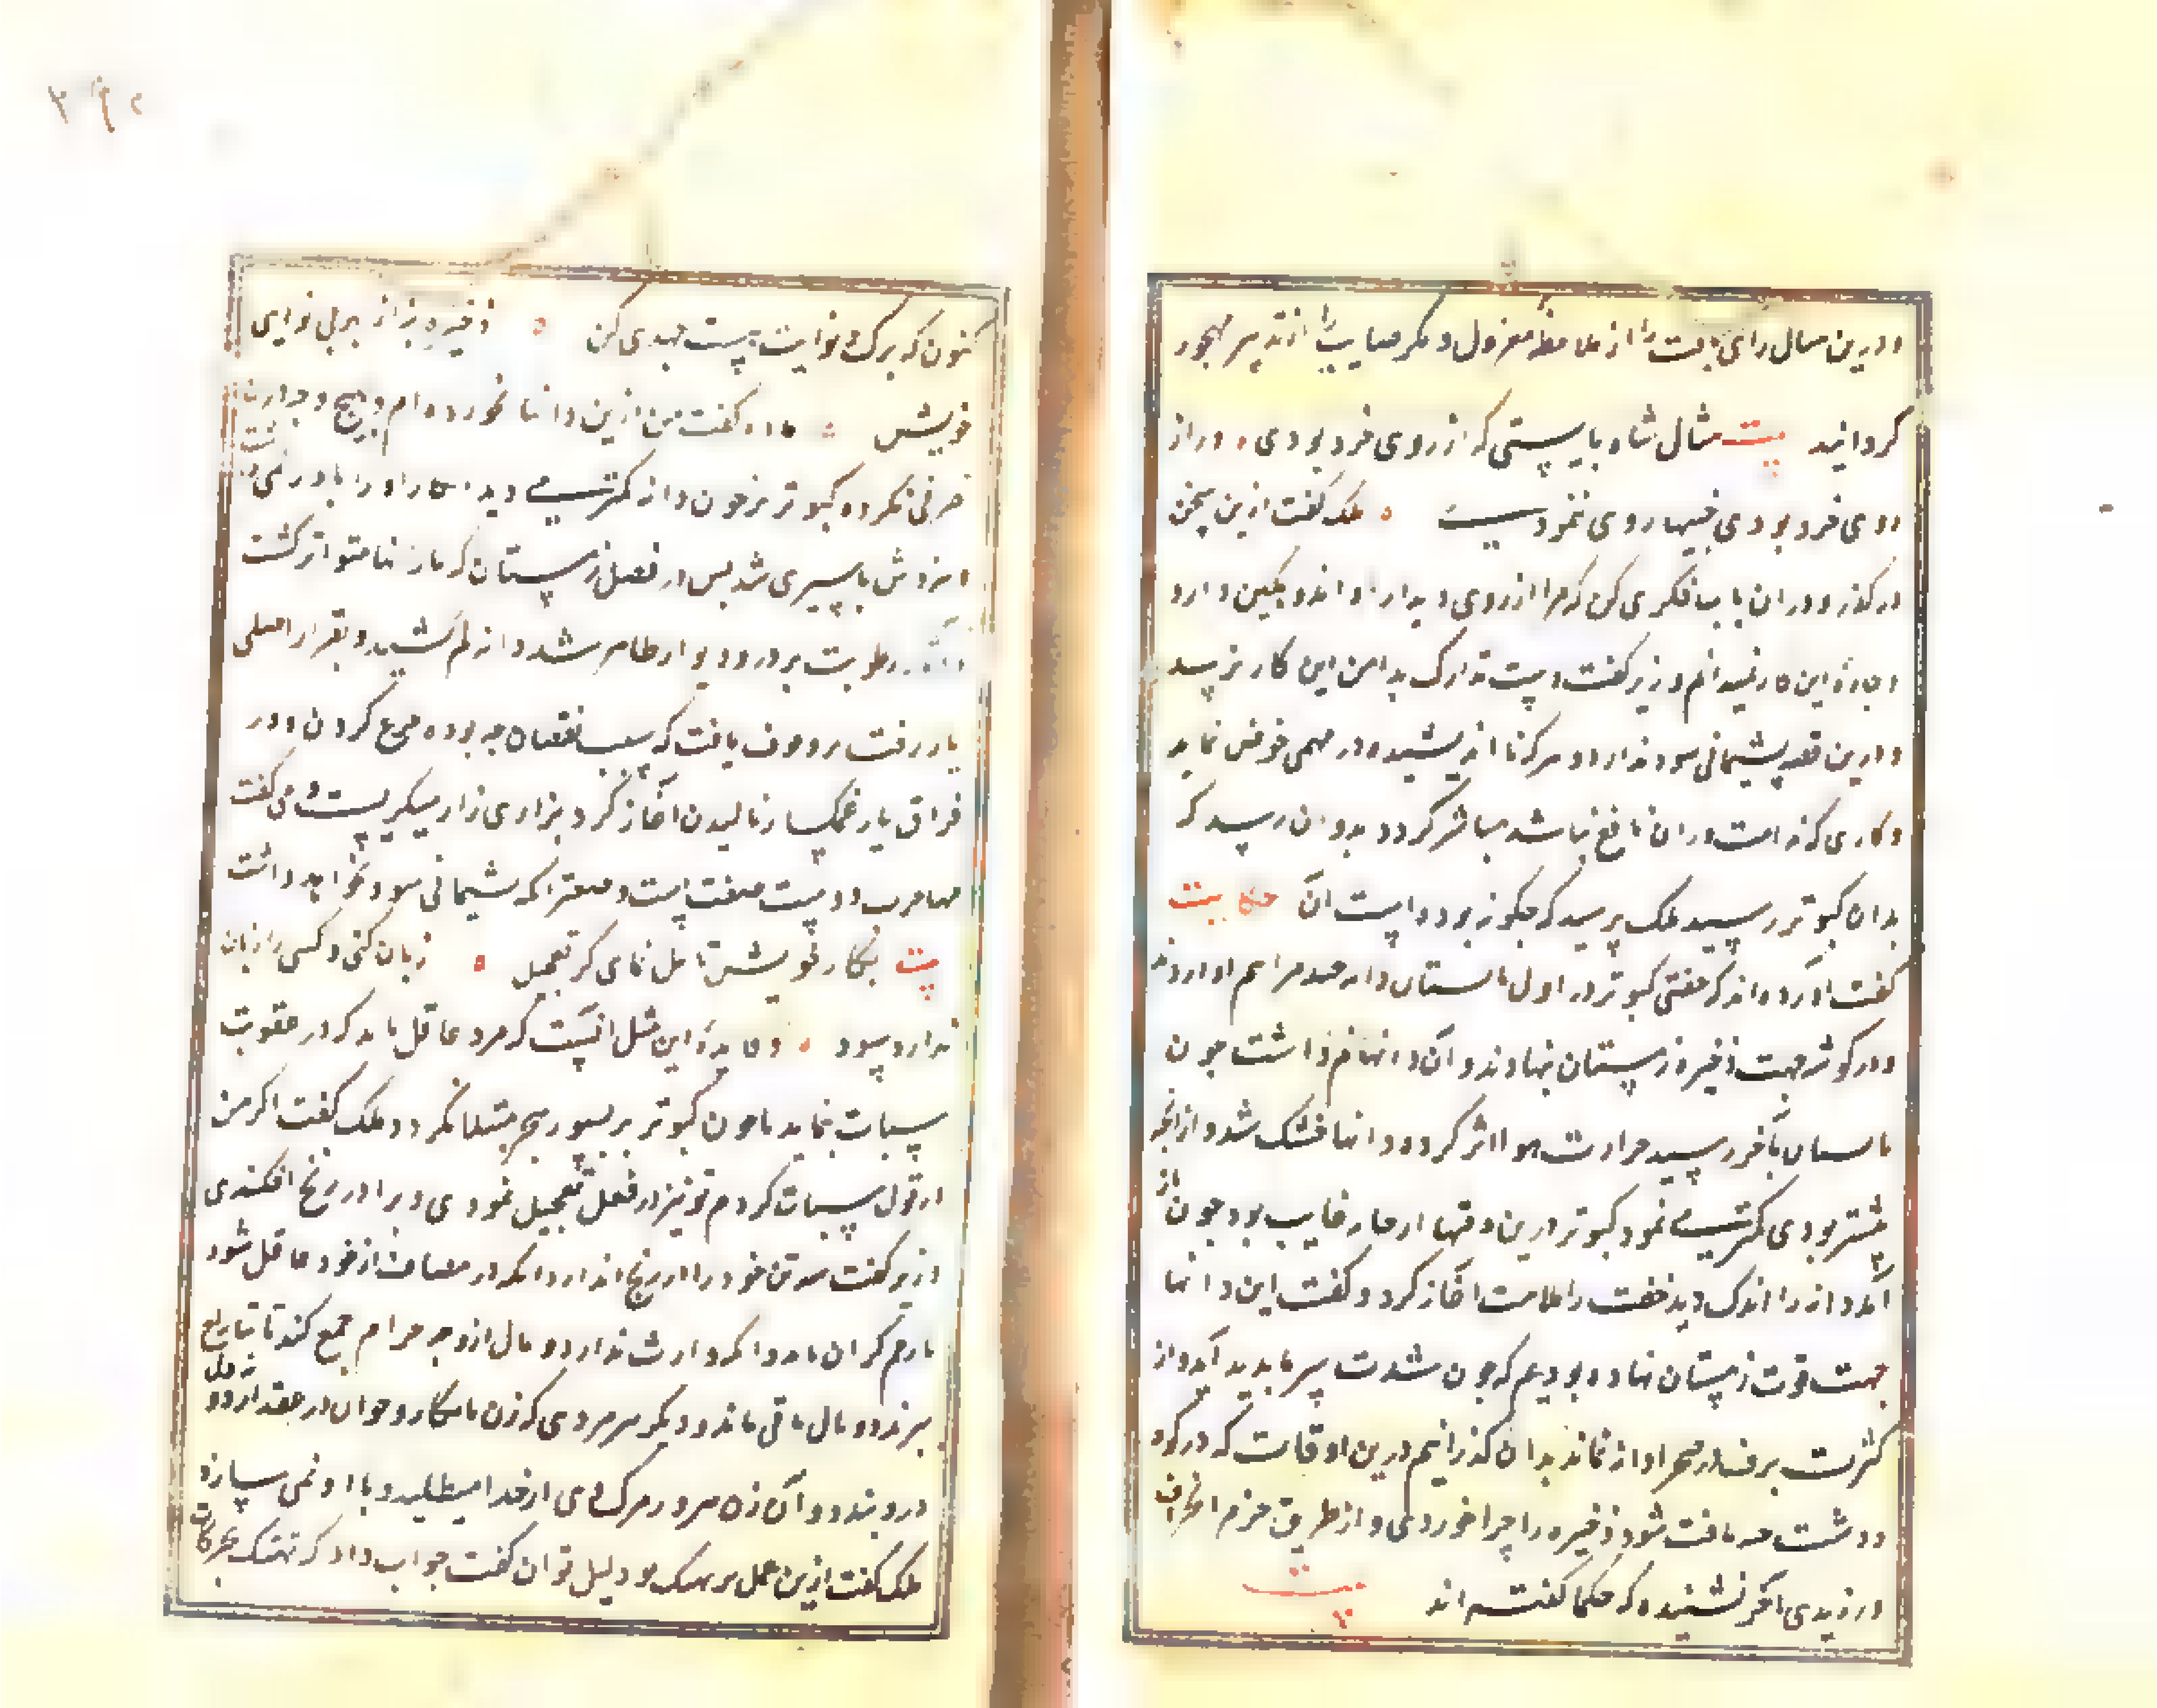 ودرین مثال رای ثابت را از ملاحظه معزول و مکر صایب را از تدبیر مهجور
کردانید بیت مثال شاه بایستی که از روی خرد بودی ۰ ور از
روی خرد بودی فیها روی ننمودست ۰ ملک گفت ازین سخن
در کذر و در ان باب فکری کن که مرا از روی دیدار او اندوهکین دارد
و چارهٔ این کار نمیدانم وزیر گفت دست تدارک بدامن این کار نرسد
و درین قصه پشیمانی سود ندارد و هر که نا اندیشیده در مهمی خوض نماید
و کاری که ندامت در ان نافع نباشد مباشر کردد بدو ان رسد که
بدان کبوتر رسید ملک پرسید که چکونه بوده است آن حکایت
گفت آورده اند که جفتی کبوتر در اول تابستان دانه چند فراهم آوردند
و در کوشه جهت ذخیره زمستان نهادند و آن دانها نم داشت چون
تابستان بآخر رسید حرارت هوا اثر کرده و دانها خشک شد و از آنچه
پیشتر بودی کمتر می نمود کبوتر درین وقتها از خانه غایب بود چون باز
آمد و دانه را اندک دید جفت را ملامت آغاز کرد و گفت این دانها
جهت قوت زمستان نهاده بودیم که چون شدت سرما پدید آید و از
کثرت برف در صحرا دانه نماند بدان کذرانیم درین اوقات که در کوه
و دشت چینه یافت شود ذخیره را چرا خوردی و از طریق حزم انحراف
ورزیدی آخر نشنیده که حکما گفته اند بیت
کنون که برک و نوایت هست جهدی کن ۰ ذخیره بنه از بهر بی نوایی
خویش ۰ ماده گفت من ازین دانها نخورده ام و هیچ وجه ازینها
خرجی نکرده کبوتر نر چون دانه کمتر می دید انکار او را باور نمی داشت
و میزدش تا سپری شد پس در فصل زمستان که بارانها متواتر کشت
و آثار رطوبت بر در و دیوار ظاهر شد دانه نم کشید و بقرار اصلی
باز رفت نر وقوف یافت که سبب نقصان چه بوده جزع کردن و در
فراق یار غمکسار نالیدن آغاز کرد بزاری زار میکریست و می گفت
مهاجرت دوست صعبست و صعبتر آنکه پشیمانی سود نخواهد داشت
بیت بکار خویش تامل نمای کز تعجیل ۰ زیان کنی و کسی را زیان
ندارد سود ۰ و فایدهٔ این مثل آنست که مرد عاقل باید که در عقوبت
شتاب ننماید تا چون کبوتر بر بسوز هجر مبتلا نکردد ملک گفت اکر من
در قول شتاب کردم تو نیز در فعل تعجیل نمودی و مرا در رنج افکندی
وزیر گفت سه تن خود را در رنج اندازد آنکه در مصاف از خود غافل شود
تا زخم کران یابد و آنکه وارث ندارد و مال از وجه حرام جمع کند تا بتاراج
ببرند و وبال باقی ماند و دیکر پیر مردی که زن نابکار و جوان در عقد آرد و دل
درو بندد و آن زن هر روز مرک وی از خدا میطلبد و با او نمی سازد
ملک گفت ازین عمل بر تهتک تو دلیل توان گفت جواب داد که تهتک بحرکات